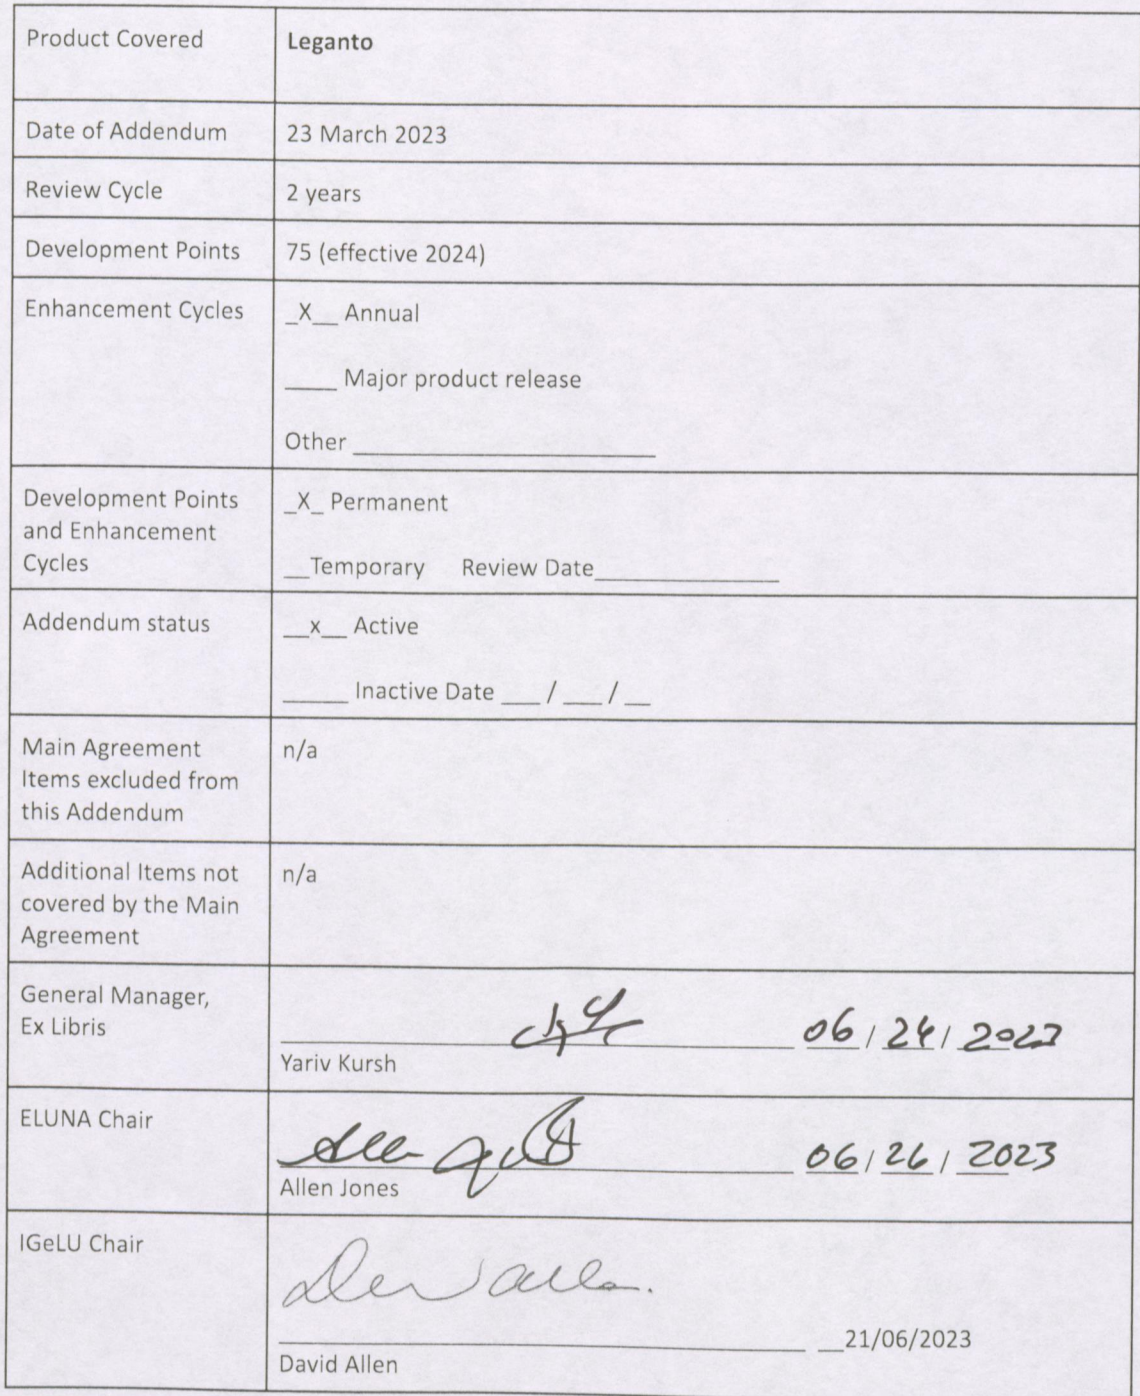 Product Covered
Leganto
Date of Addendum
23 March 2023
Review Cycle
2 years
Development Points
75 (effective 2024)
Enhancement Cycles
_X__ Annual
____ Major product release
Other _______________________
Development Points
and Enhancement
Cycles
_X_ Permanent
__Temporary Review Date______________
Addendum status
__x__ Active
_____ Inactive Date ___ / ___ / __
Main Agreement
Items excluded from
this Addendum
n/a
Additional Items not
covered by the Main
Agreement
n/a
General Manager,
Ex Libris
06 / 24 / 2023
Yariv Kursh
ELUNA Chair
06 / 26 / 2023
Allen Jones
IGeLU Chair
__21/06/2023
David Allen